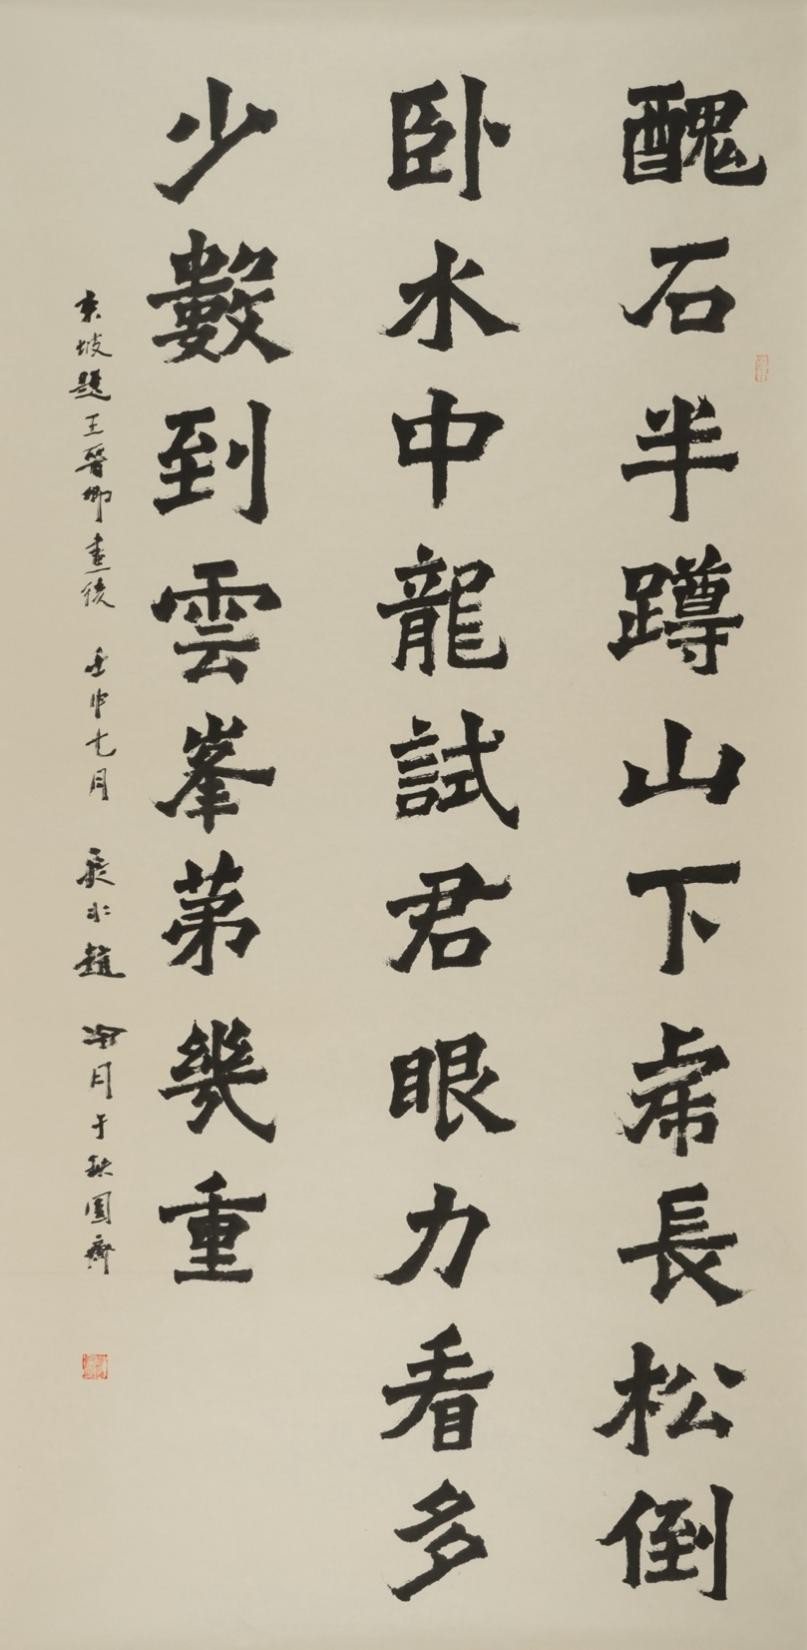 醜石半蹲山下虎長松倒
卧水中龍試君眼力看多
少數到雲峯第幾重
東坡題王晉卿畫後 壬申七月 趙冷月于缺圓齋